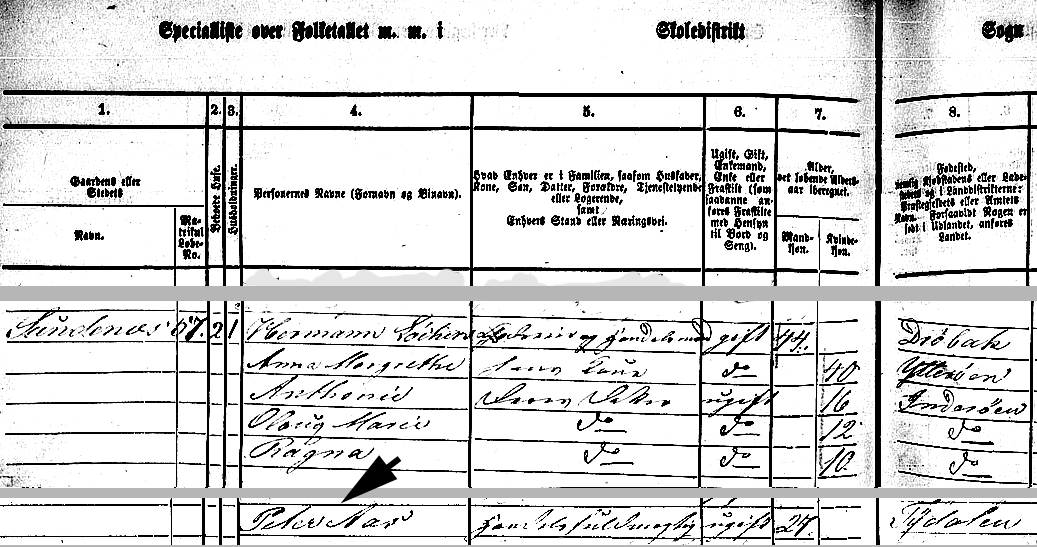 Specialliste over Folketallet m. m. i Skoledistrikt Sogn
1. 2. 3. 4. 5. 6. 7. 8.
Gaardens eller Stedets
Navn.
Ma-
trikul
Løbe-
No.
Beboede Huse.
Husholdninger.
Personernes Navne (Fornavn og Binavn).
Hvad Enhver er i Familien, saasom Husfader,
Kone, Søn, Datter, Forældre, Tjenestetyende
eller Logerende,
samt
Enhvers Stand eller Næringsvei.
Ugift, Gift,
Enkemand,
Enke eller
Fraskilt (som
saadanne an-
føres Fraskilte
med Hensyn
til Bord og
Seng).
Alder,
det løbende Alders-
aar iberegnet.
Mand-
kjøn.
Kvinde-
kjøn.
Fødested,
nemlig Kjøbstadens eller Lade-
stedets og i Landdistrikterne:
Præstegjeldets eller Amtets
Navn. Forsaavidt Nogen er
født i Udlandet, anføres
Landet.
Sundenes 67. 2 1 Hermann og Handelsmand gift 44. Drøbak
Anna Margrethe hans Kone do 40 Ytterøen
Anthonie Deres Datter ugift 16 Inderøen
Oloug Marie do do 12 do
Ragna do do 10 do
Peter Aas Handelsfuldmægtig ugift 27. Tydalen